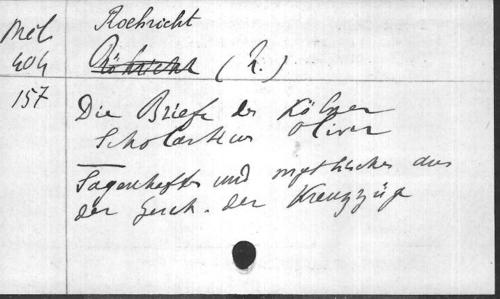 Mél. Roehricht
404 Röhricht (R.)
157 Die Briefe des Kölner
Scholasticus Oliver
Sagenhaftes und mythisches aus
der Gesch. der Kreuzzüge